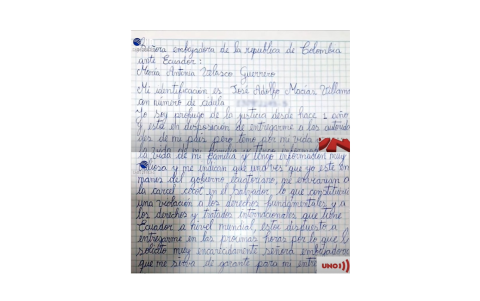 Señora embajadora de la republica de Colombia
ante Ecuador:
María Antonia Velasco Guerrero
Mi identificación es José Adolfo Macías Villamar
con número de cedula
Yo soy profugo de la justicia desde hace 1 año
y estoy en de entregarme a las
de mi país pero temo por mi vida
la vida de mi familia y tengo información muy
y me indican que una vez ya este en
manos del gobierno ecuatoriano, me enviarian a
la carcel cecot en el Salvador, lo que constituiria
una violación a los derechos fundamentales y a
los derechos y tratados internacionales que tiene
Ecuador a nivel mundial, estoy dispuesto a
entregarme en las proximas horas por lo que le
solicito muy encarecidamente señora embajadora
que me sirva de garante para mi
UNO